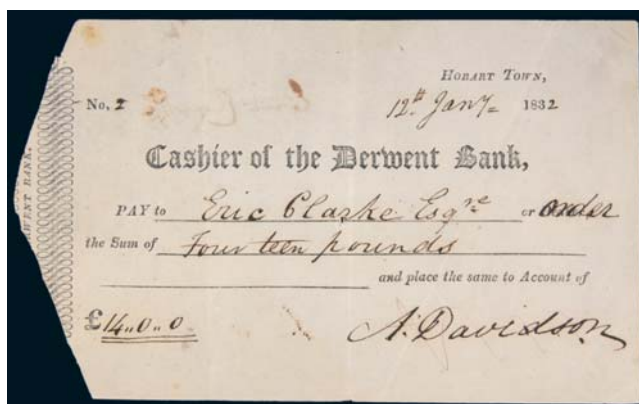 HOBART TOWN,
No. 2
12th Jany 1832
Cashier of the Derwent Bank,
PAY to Eric Clarke Esqre or order
the Sum of Fourteen pounds
and place the same to Account of
£14..0..0
A. Davidson
WENT BANK.